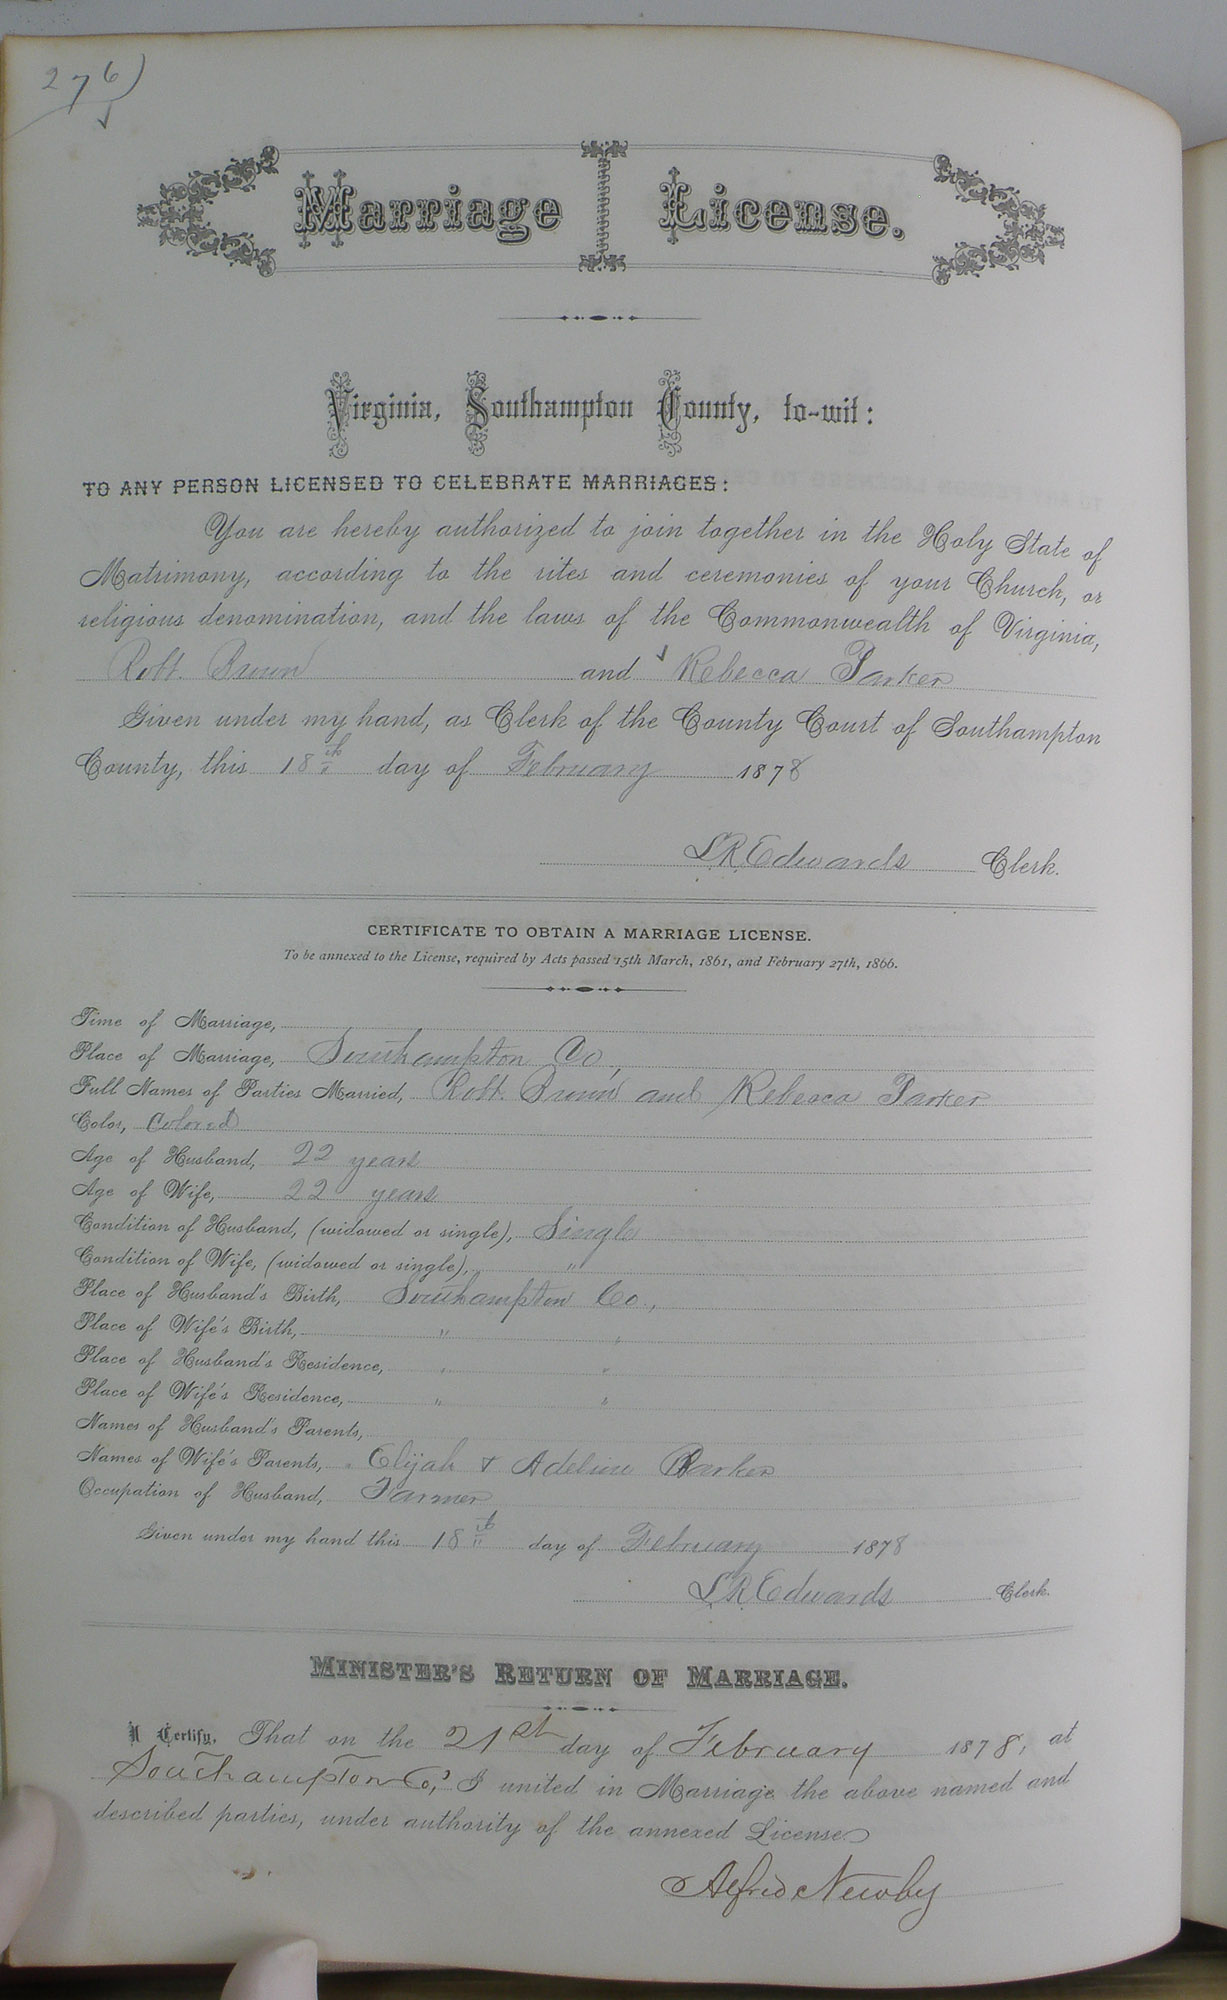 276)
Marriage License.
Virginia, Southampton County, to-wit:
TO ANY PERSON LICENSED TO CELEBRATE MARRIAGES:
You are hereby authorized to join together in the Holy State of
Matrimony, according to the rites and ceremonies of your Church, or
religious denomination, and the laws of the Commonwealth of Virginia,
Robt. Brown and Rebecca Parker
Given under my hand, as Clerk of the County Court of Southampton
County, this 18th day of February 1878
L.R. Edwards Clerk.
CERTIFICATE TO OBTAIN A MARRIAGE LICENSE.
To be annexed to the License, required by Acts passed 15th March, 1861, and February 27th, 1866.
Time of Marriage,
Place of Marriage, Southampton Co,
Full Names of Parties Married, Robt. Brown and Rebecca Parker
Color, Colored
Age of Husband, 22 years
Age of Wife, 22 years
Condition of Husband, (widowed or single), Single
Condition of Wife, (widowed or single), "
Place of Husband's Birth, Southampton Co.,
Place of Wife's Birth, " "
Place of Husband's Residence, " "
Place of Wife's Residence, " "
Names of Husband's Parents,
Names of Wife's Parents, Elijah & Adeline Parker
Occupation of Husband, Farmer
Given under my hand this 18th day of February 1878
L.R. Edwards Clerk.
MINISTER'S RETURN OF MARRIAGE.
I Certify, That on the 21st day of February 1878, at
Southampton Co, I united in Marriage the above named and
described parties, under authority of the annexed License
Alfred Newby